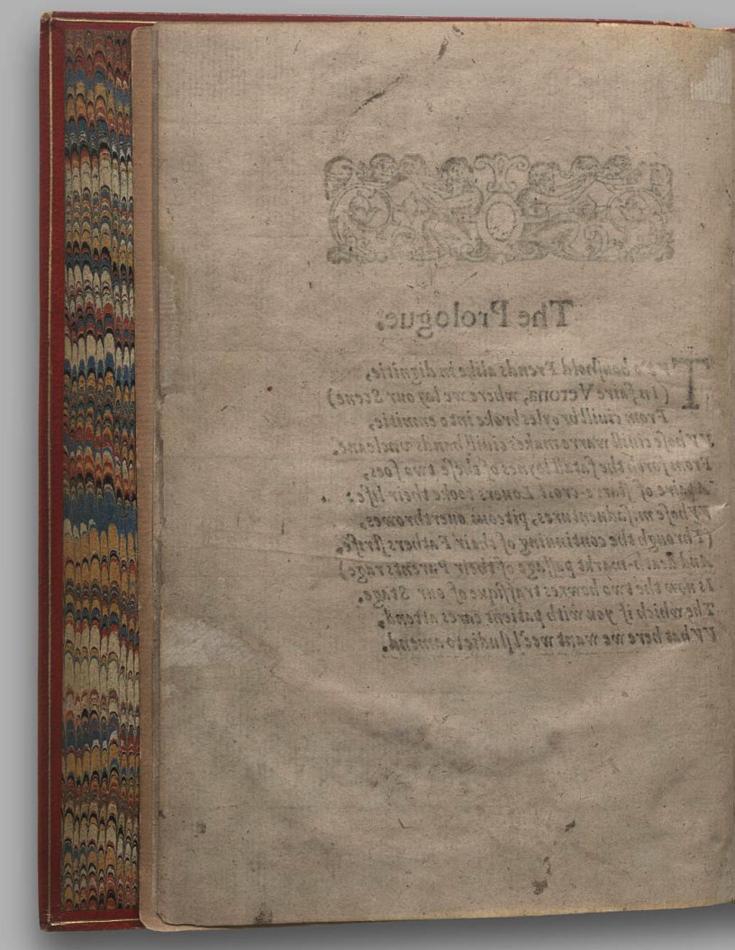 The Prologue.
TVVo houſhold Frends alike in dignitie,
(In faire Verona, where we lay our Scene)
From ciuill broyles broke into enmitie,
VVhoſe ciuill warre makes ciuill hands vncleane.
From forth the fatall loynes of theſe two foes,
A paire of ſtarre-croſt Louers tooke their life:
VVhoſe miſaduentures, piteous ouerthrowes,
(Through the continuing of their Fathers ſtrife,
And death-markt paſſage of their Parents rage)
Is now the two howres traffique of our Stage.
The which if you with patient eares attend,
VVhat here we want wee'l ſtudie to amend.